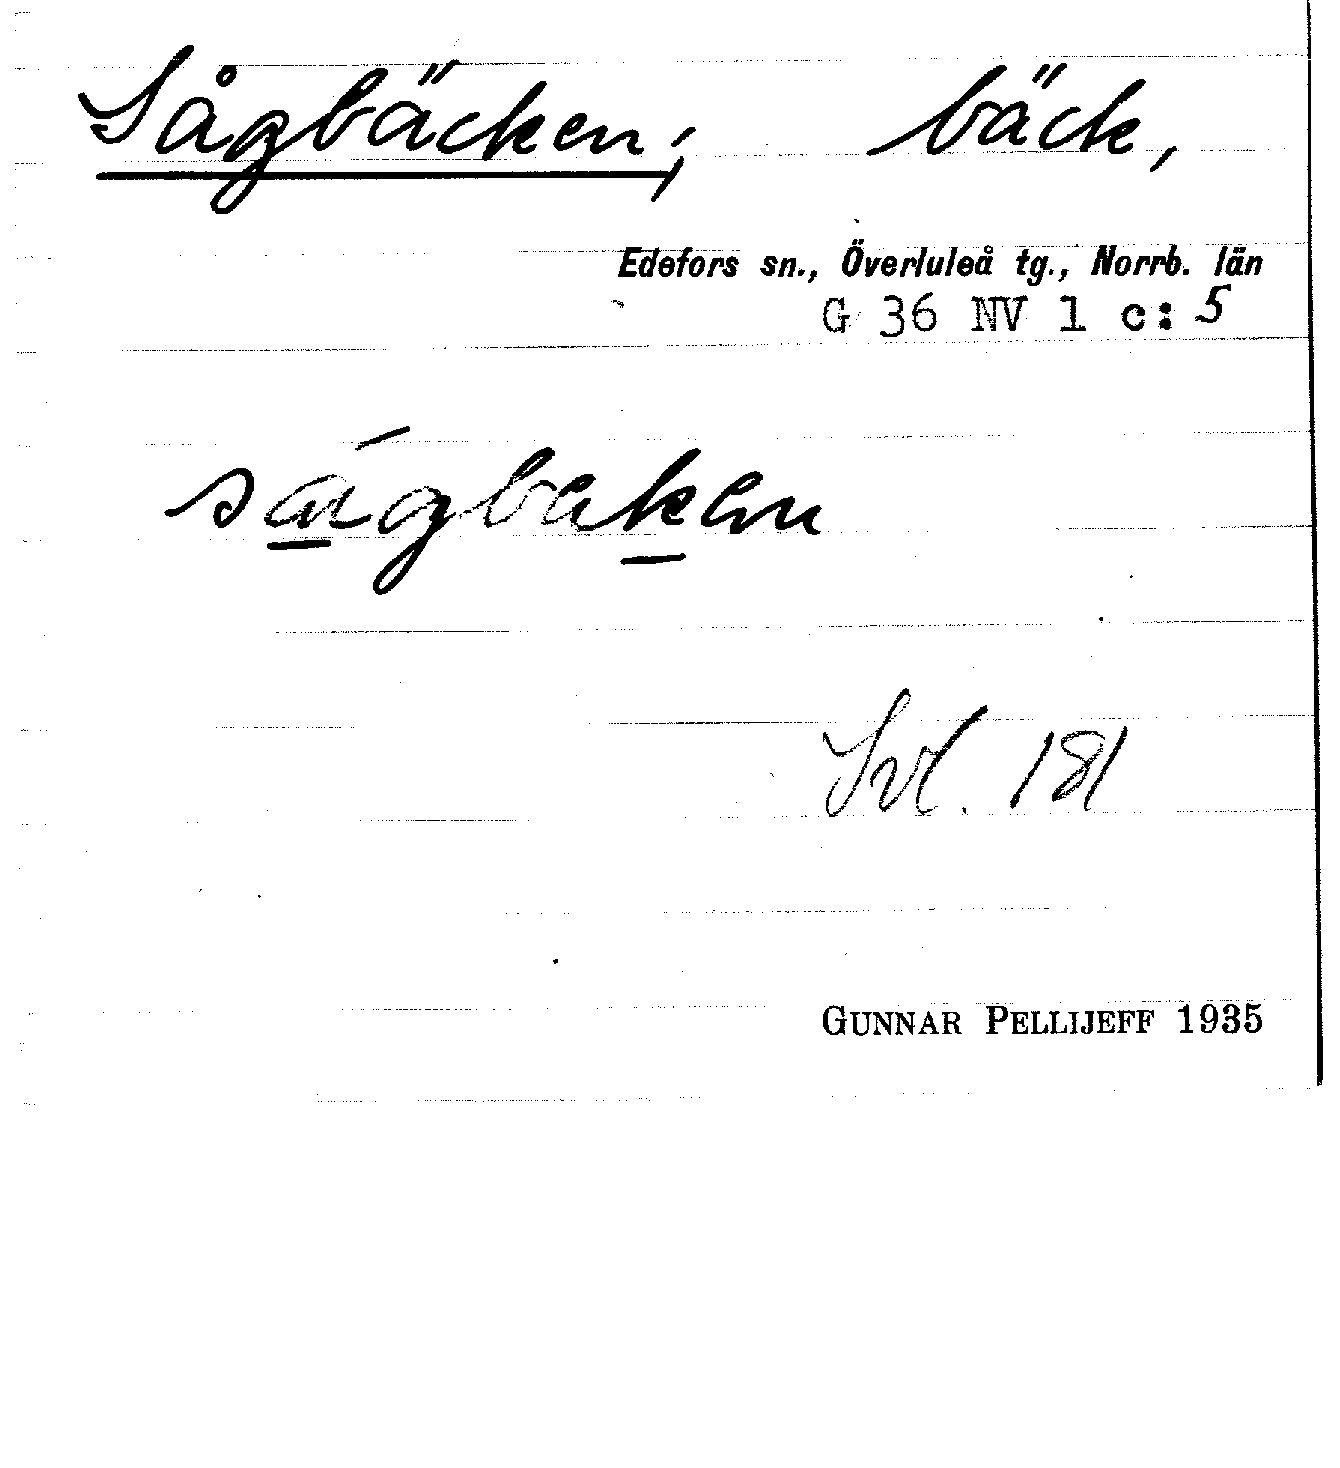 Sågbäcken, bäck,
Edefors sn., Överluleå tg., Norrb. län
G 36 NV 1 c: 5
181
GUNNAR PELLIJEFF 1935